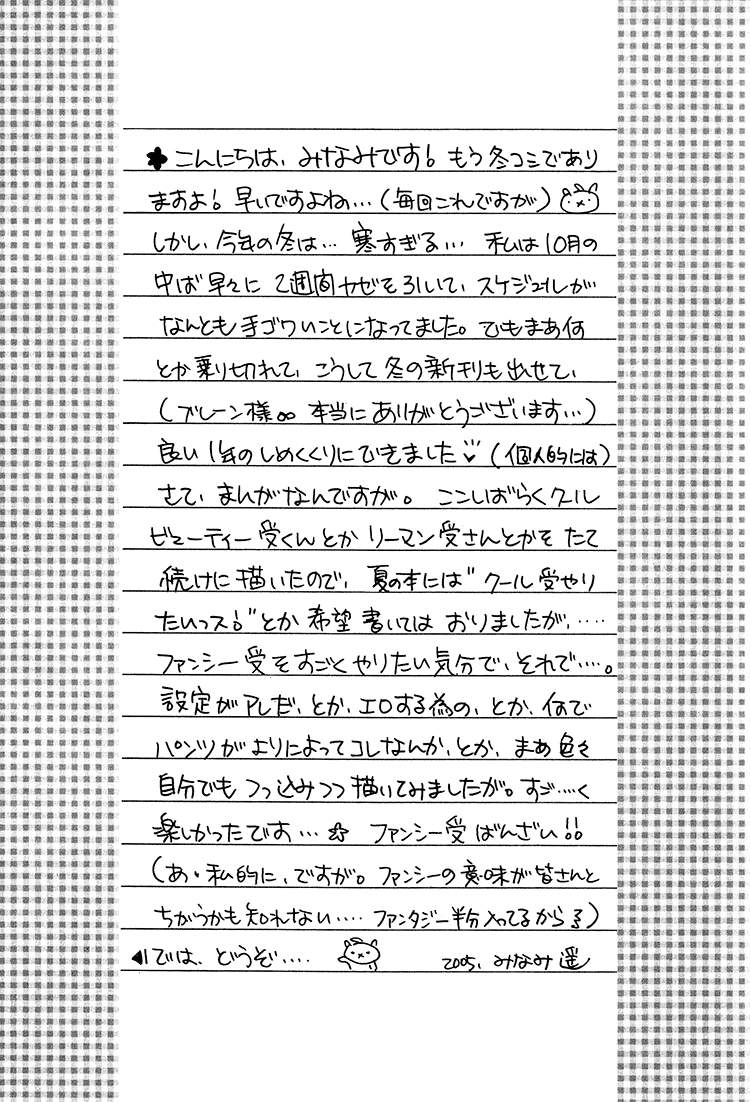 こんにちは、みなみです! もう冬コミであり
ますよ! 早いですよね…(毎回これですが)
しかし、今年の冬は… 寒すぎる… 私は10月の
中ば早々に 2週間カゼを引いて、スケジュールが
なんとも手ゴワいことになってました。でもまあ何
とか乗り切れて、こうして冬の新刊も出せて、
(ブレーン様∞ 本当にありがとうございます…)
良い1年のしめくくりにできました♡(個人的には)
さて、まんがなんですが。 ここしばらくクール
ビューティー受くんとか リーマン受さんとかを たて
続けに描いたので、夏の本には"クール受やり
たいっス!"とか希望書いてはおりましたが、‥‥
ファンシー受をすごくやりたい気分で、それで‥‥。
設定がアレだ、とか、エロする為の、とか、何で
パンツがよりによってコレなんか、とか、まあ色々
自分でもつっ込みつつ描いてみましたが。すご‥‥く
楽しかったです…☆ ファンシー受ばんざい!!
(あ・私的に、ですが。ファンシーの意味が皆さんと
ちがうかも知れない‥‥ファンタジー半分入ってるからね)
では、どうぞ‥‥ 2005、みなみ遥